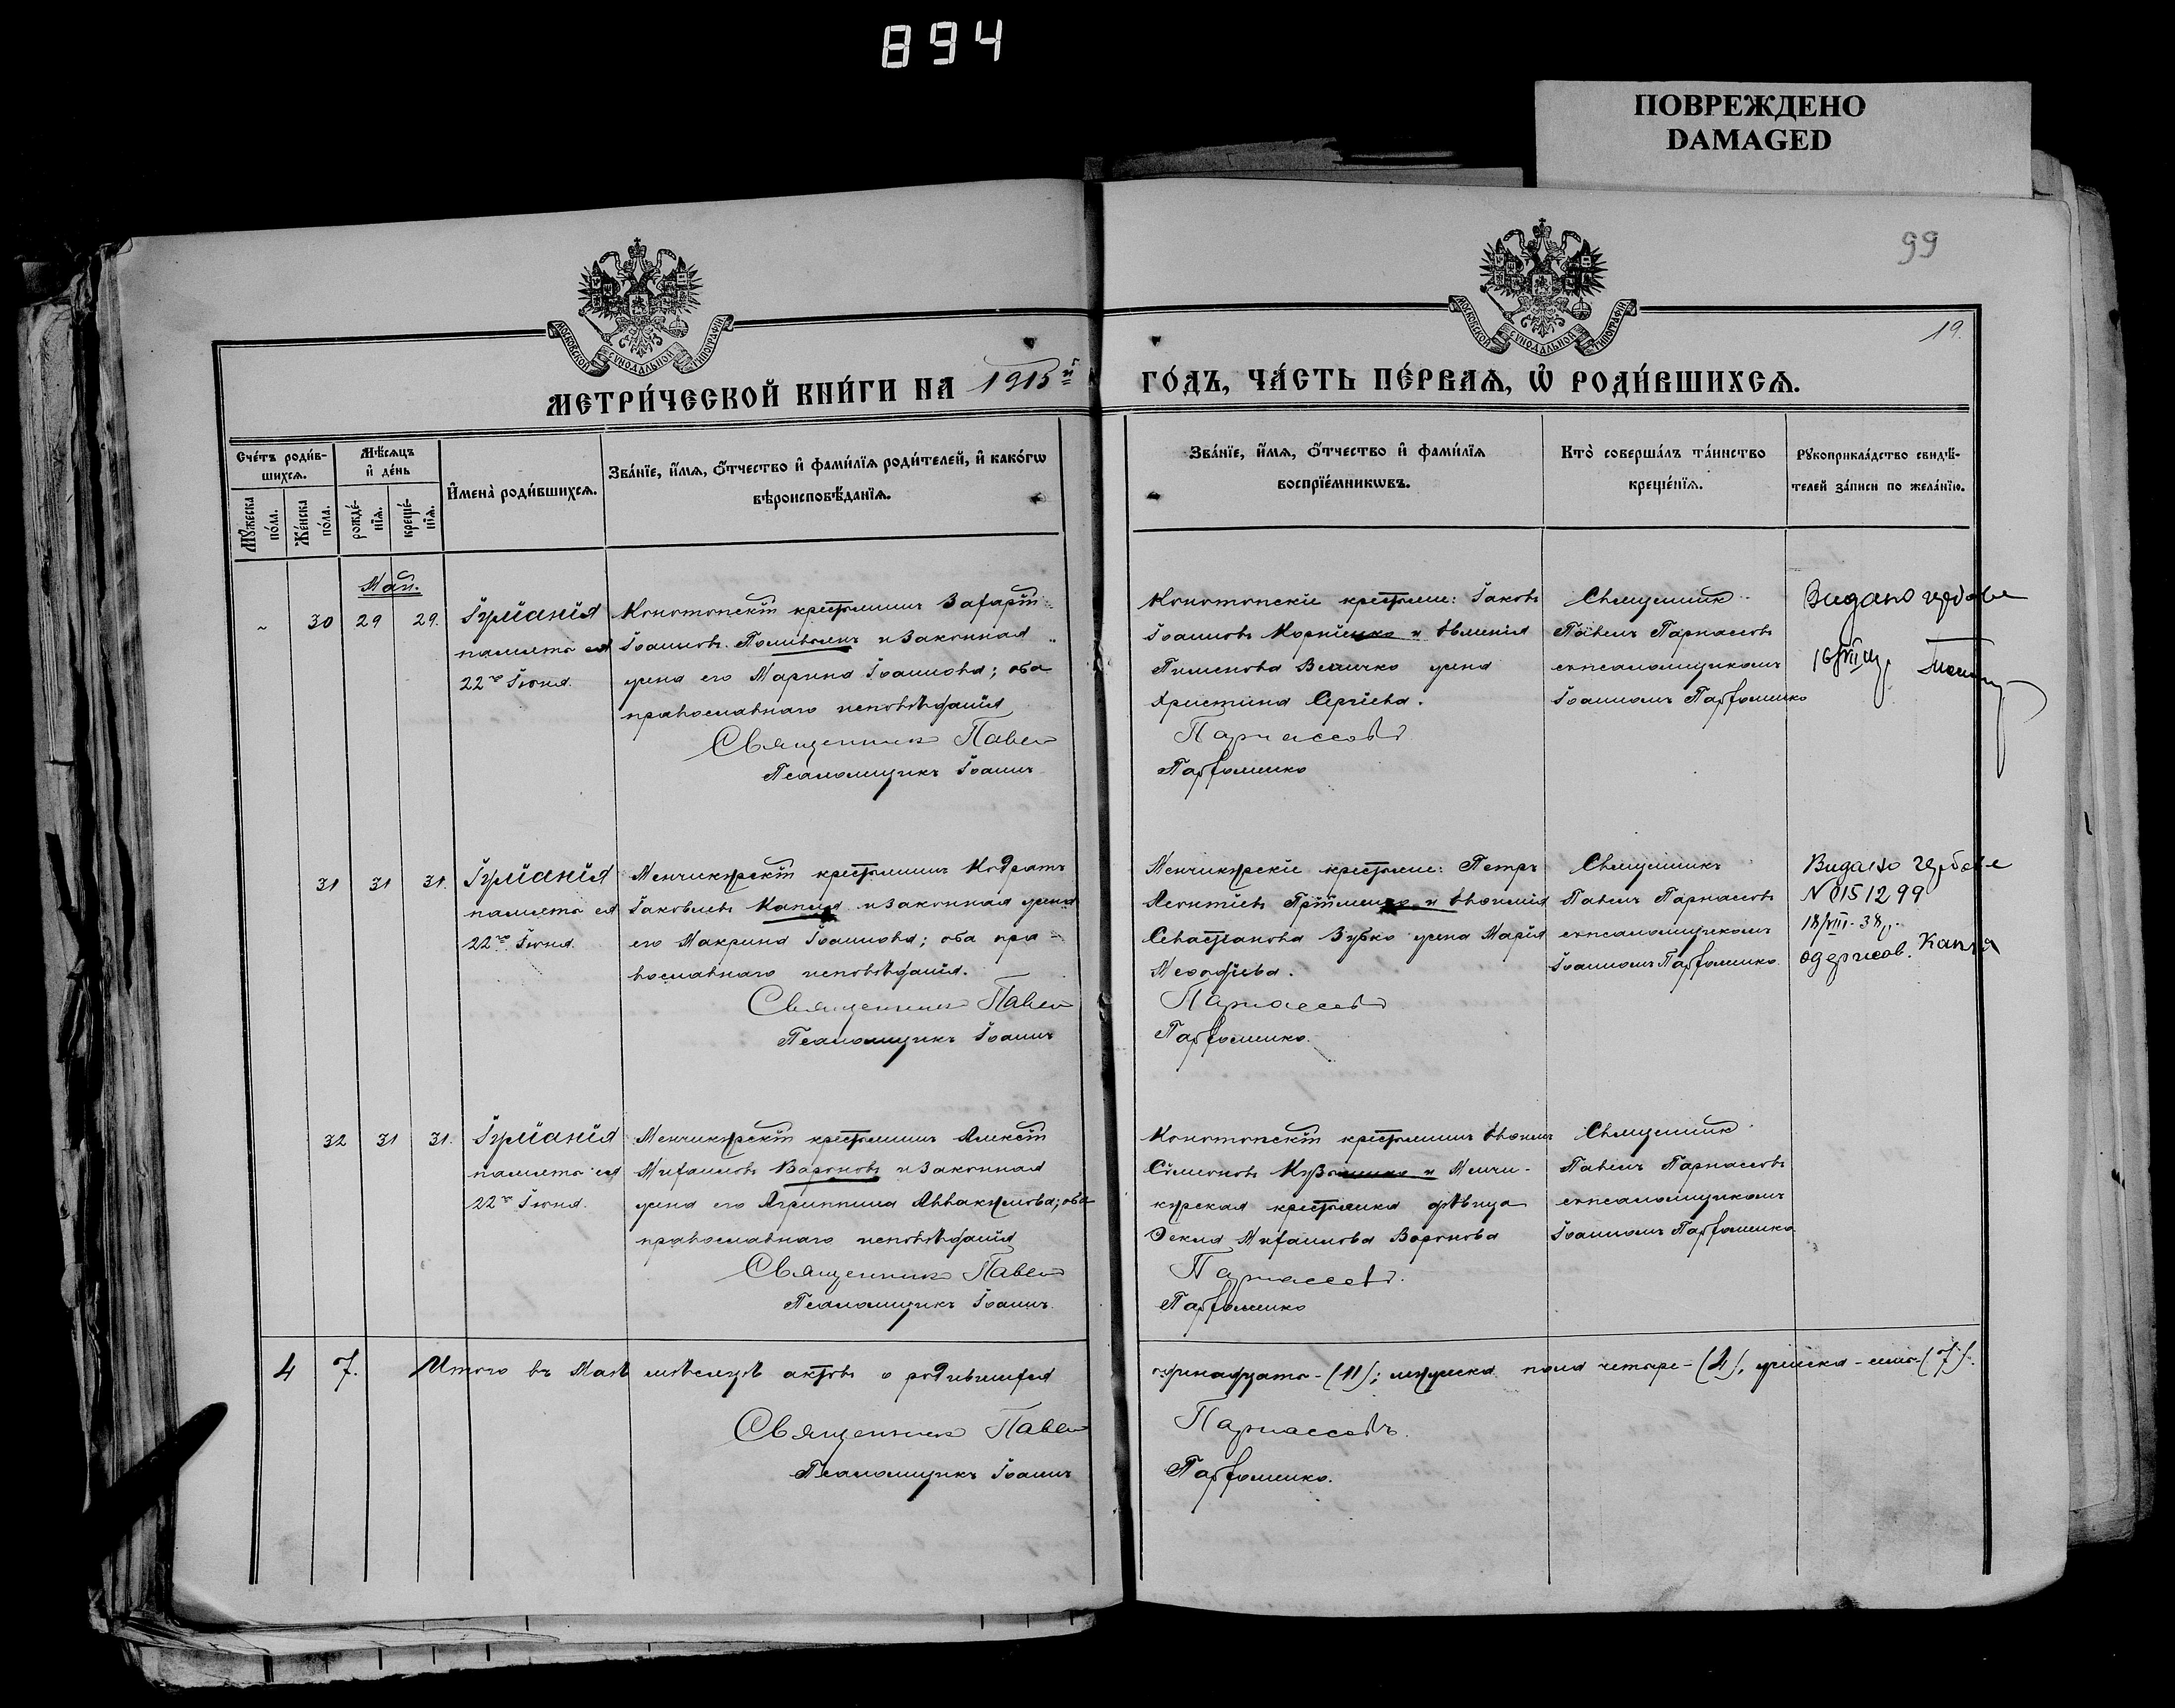 894
ПОВРЕЖДЕНО
DAMAGED
99
19.
МОСКОВСКОЙ СѴНОДАЛЬНОЙ ТИПОГРАФІИ
МОСКОВСКОЙ СѴНОДАЛЬНОЙ ТИПОГРАФІИ
МЕТРИ́ЧЕСКОЙ КНИ́ГИ НА 1915й
ГО́ДЪ, ЧА́СТЬ ПЕ́РВАѦ, Ѡ҆ РОДИ́ВШИХСѦ.
Сче́тъ роди́в-
шихсѧ.
Мꙋ́жеска
по́ла.
Же́нска
по́ла.
Мѣ́сѧцъ
и҆ де́нь
рожде́-
нїѧ.
креще́-
нїѧ.
И҆мена̀ роди́вшихсѧ.
Зва́нїе, и҆́мѧ, ѻ҆́тчество и҆ фами́лїѧ роди́телей, и҆ како́гѡ
вѣроисповѣ́данїѧ.
Зва́нїе, и҆́мѧ, ѻ҆́тчество и҆ фами́лїѧ
воспрїе́мникѡвъ.
Кто̀ соверша́лъ та́инство
креще́нїѧ.
Рꙋкоприкла́дство свидѣ́-
телей за́писи по жела́нїю.
Май.
30 29 29.
Іуліанія
память ея
22го Іюня.
Конотопскій крестьянинъ Захарій
Іоанновъ и законная
жена его Марина Іоаннова; оба
православнаго исповѣданія
Священник Павел
Псаломщикъ Іоаннъ
Конотопскіе крестьяне: Іаковъ
Іоанновъ Корніенко и Евменія
Пименова Величко жена
Христина Сергіева.
Парнассовъ
Парфоменко
Священникъ
Павелъ Парнассовъ
съ псаломщикомъ
Іоанномъ Парфоменко
Видано
31 31 31.
Іуліанія
память ея
22го Іюня.
Менчикурскій крестьянинъ Кодратъ
Іаковлевъ Капля и законная жена
его Макрина Іоаннова; оба пра-
вославнаго исповѣданія.
Священник Павел
Псаломщикъ Іоаннъ
Менчикурскіе крестьяне: Петръ
Леонтіевъ и
Севастіанова Зубко жена Марія
Меѳодіева.
Парнассовъ
Парфоменко.
Священникъ
Павелъ Парнассовъ
съ псаломщикомъ
Іоанномъ Парфоменко.
Видано
N 0151299
18/VIII-38р.
одержав. Капля
32 31 31.
Іуліанія
память ея
22го Іюня.
Менчикурскій крестьянинъ Алексій
Михаиловъ Вороновъ и законная
жена его Агриппина Аввакумова; оба
православнаго исповѣданія
Священник Павел
Псаломщикъ Іоаннъ.
Конотопскій крестьянинъ
Сѵмеоновъ и Менчи-
курская крестьянка дѣвица
Ѳекла Михаилова Воронова
Парнассовъ.
Парфоменко
Священникъ
Павелъ Парнассовъ
съ псаломщикомъ
Іоанномъ Парфоменко
4 7. Итого въ Маѣ мѣсяцѣ актовъ о родившихся
одинадцать-(11); мужеска пола четыре-(4), женска-семь-(7).
Священник Павел
Псаломщикъ Іоаннъ
Парнассовъ.
Парфоменко.